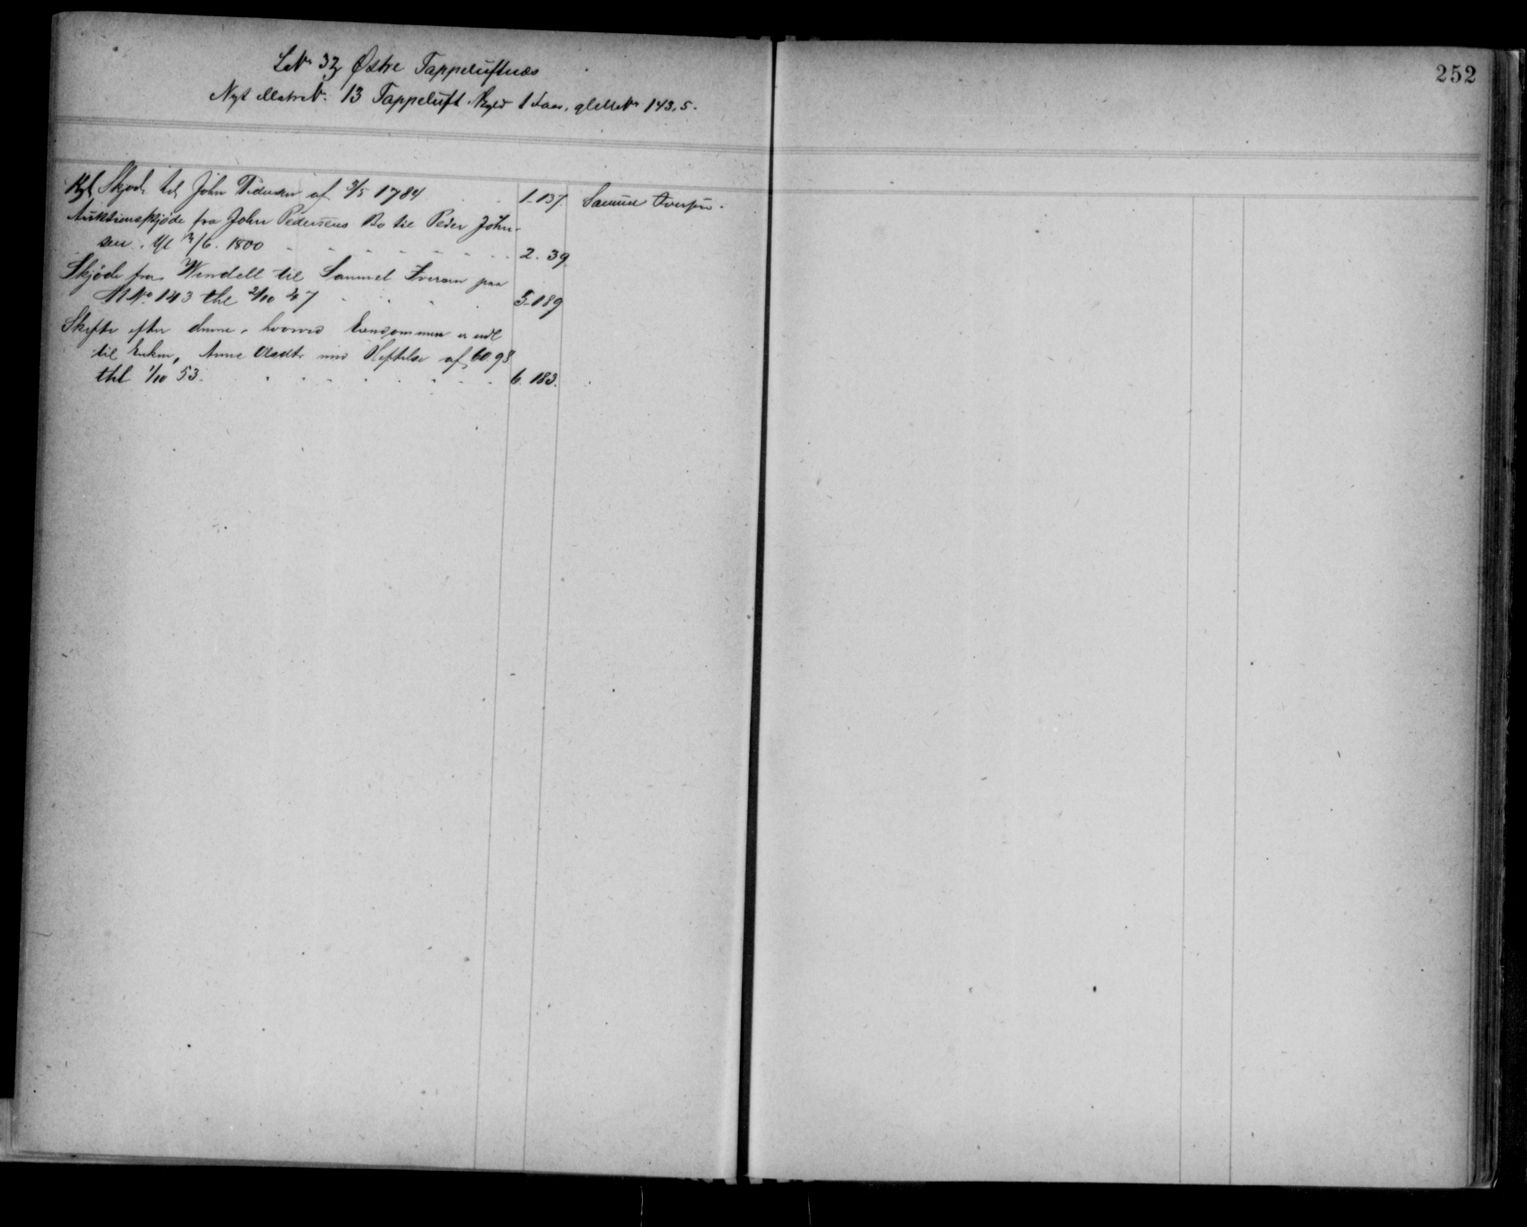 252
LNr 32 Østre Tappeluftnæs
Nyt Matr Nr. 13 Tappeluft Skyld 1 gl Nr 143,5.
Kgl Skjøde til John Pedersen af 3/5 1784 1.137. Samuel Iversen.
Auktionsskjøde fra John Pedersens Bo til Peder John-
sen, /6. 1800 2. 39.
Skjøde fra Wendell til Samuel Iversen paa
MNo 143 thl 2/10 47 5.189
Skifte efter denne, hvorved Eiendommen er udl
til Enken, Anne med Heftelse af 60
thl 1/10 53. 6. 183.